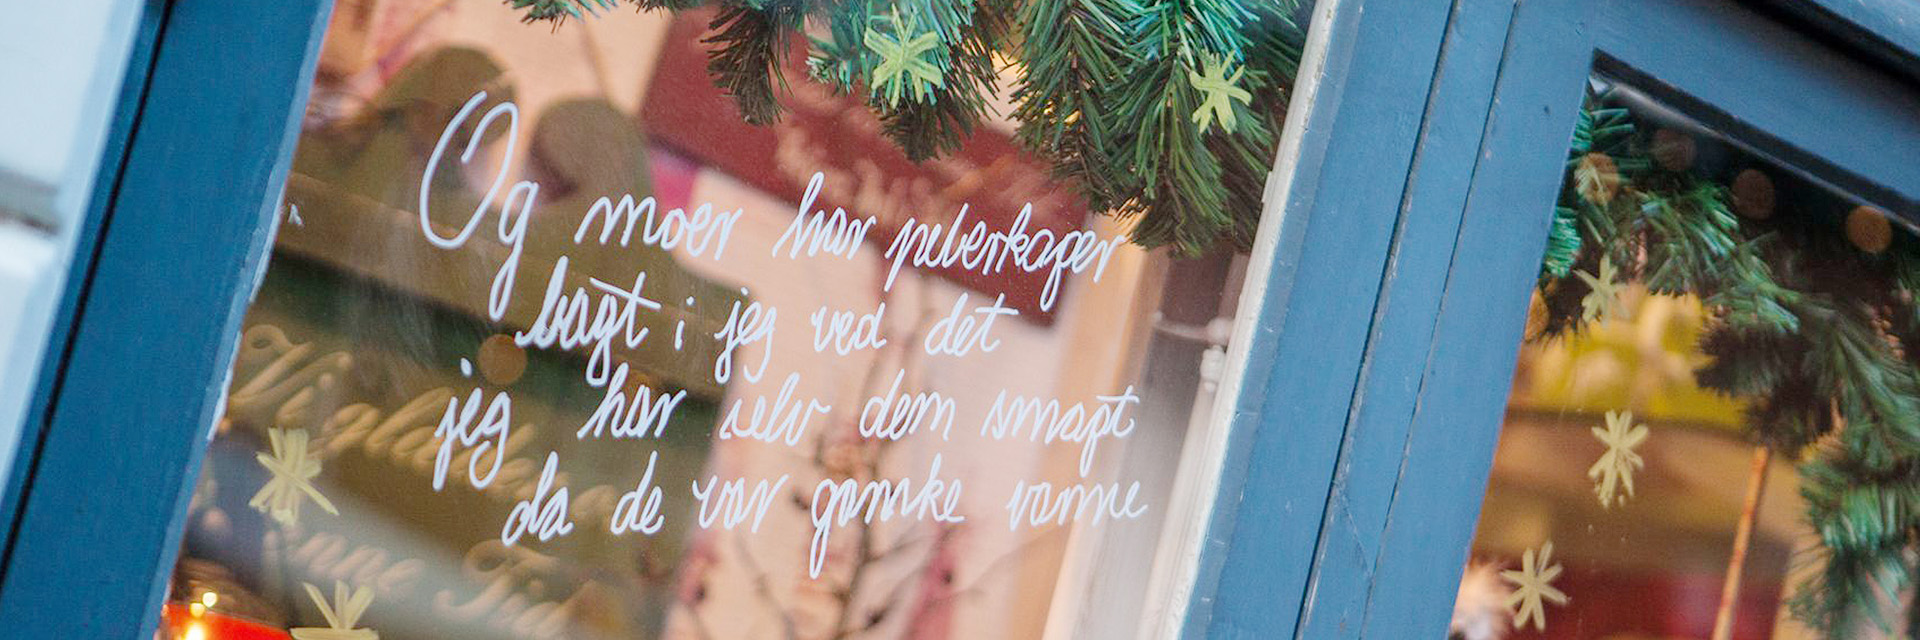 Og moer har peberkager
bagt i jeg ved det
jeg har selv dem smagt
da de var ganske varme
Vi
Tid